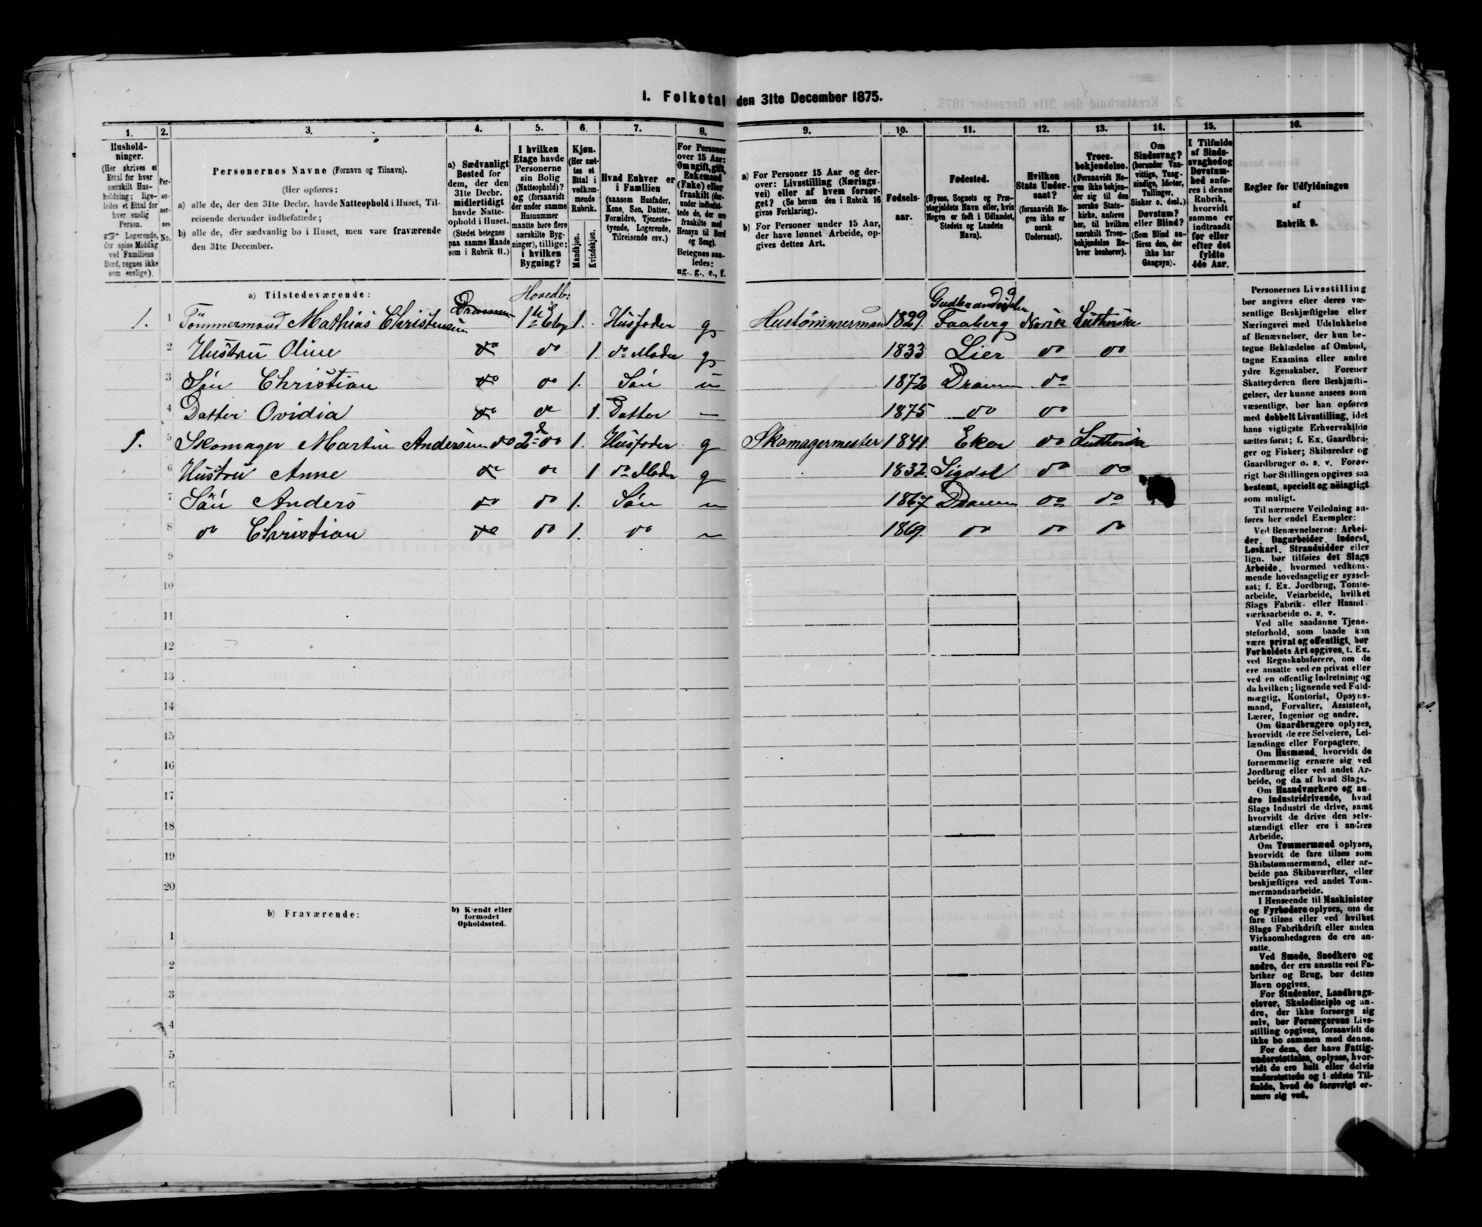 1. Folketal den 31te December 1875.
1. 2. 3. 4. 5. 6. 7. 8. 9. 10. 11. 12. 13. 14. 15. 16.
Hushold-
ninger.
(Her skrives et
Ettal for hver
særskilt Hus-
holdning; lige-
ledes et Ettal for
hver enslig
Person.
Logerende,
der spise Middag
ved Familiens
Bord, regnes ikke
som enslige).
Per-
so-
ner-
nes
No.
Personernes Navne (Fornavn og Tilnavn).
(Her opføres:
a) alle de, der den 31te Decbr. havde Natteophold i Huset, Til-
reisende derunder indbefattede;
b) alle de, der sædvanlig bo i Huset, men vare fraværende
den 31te December.
a) Sædvanligt
Bosted for
dem, der den
31te Decbr.
midlertidigt
havde Natte-
ophold i Huset.
(Stedet betegnes
paa samme Maade
som i Rubrik 11.)
I hvilken
Etage havde
Personerne
sin Bolig
(Natteophold)?
og (forsaavidt
der under samme
Husnummer
maatte høre flere
særskilte Byg-
ninger), tillige:
i hvilken
Bygning?
Kjøn.
(Her sæt-
tes et
Ettal i
vedkom-
mende
Rubrik.
Mandkjøn.
Kvindekjøn.
Hvad Enhver er
i Familien
(saasom Husfader,
Kone, Søn, Datter,
Forældre, Tjeneste-
tyende, Logerende,
Tilreisende osv.)
For Personer
over 15 Aar:
Om ugift, gift,
Enkemand
(Enke) eller
fraskilt (der-
under indbefat-
tede de, der ere
fraskilte med
Hensyn til Bord
og Seng).
Betegnes saa-
ledes:
ug., g., e., f.
a) For Personer 15 Aar og der-
over: Livsstilling (Nærings-
vei) eller af hvem forsør-
get? (Se herom den i Rubrik 16
givne Forklaring).
b) For Personer under 15 Aar,
der have lønnet Arbeide, op-
gives dettes Art.
Fødsels-
aar.
Fødested.
(Byens, Sognets og Præ-
stegjeldets Navn eller, hvis
Nogen er født i Udlandet,
Stedets og Landets
Navn).
Hvilken
Stats Under-
saat?
(forsaavidt No-
gen ikke er
norsk
Undersaat).
Troes-
bekjendelse.
(Forsaavidt No-
gen ikke bekjen-
der sig til den
norske Stats-
kirke, anføres
her, til hvilken
særskilt Troes-
bekjendelse En-
hver henhører).
Om
Sindssvag?
(herunder Van-
vittige, Tung-
sindige, Idioter,
Tullinger,
Sinker o. desl.)
Døvstum?
eller Blind?
(Som Blind an-
føres den, der
ikke har
Gangsyn).
I Tilfælde
af Sinds-
svaghed og
Døvstum-
hed anfø-
res i denne
Rubrik,
hvorvidt
samme er
indtraadt
før eller
efter det
fyldte
4de Aar.
Regler for Udfyldningen
af
Rubrik 9.
a) Tilstedeværende:
1. 1 Tømmermand Mathias Christensen Drammen Hovedb: 1 til 3 etag 1. Husfader g Hustømmermand 1829 Gudbrandsdalen Faaberg Norsk Lutherske
2 Hustru Oline do do 1. do Moder g 1833 Lier do do
3 Søn Christian do do 1. Søn u 1872 Dramen do
4 Datter Ovidia do do 1. Datter — 1875 do do
1. 5 Skomager Martin Andersen do 2 do 1. Husfader g Skomagermester 1841. Eker do Lutherske
6 Hustru Anne do do 1 do Moder g 1832. Sigdal do do
7 Søn Anders do do 1. Søn 1867. Dramen do do
8 do Christian do do 1. do 1869. do do do
9
10
11
12
13
14
15
16
17
18
19
20
b) Fraværende:
b) Kjendt eller
formodet
Opholdssted.
1
2
3
4
5
6
Personernes Livsstilling
bør angives efter deres væ-
sentlige Beskjæftigelse eller
Næringsvei med Udelukkelse
af Benævnelser, der kun be-
tegne Beklædelse af Ombud,
tagne Examina eller andre
ydre Egenskaber. Forener
Skatteyderen flere Beskjæfti-
gelser, der kunne ansees som
væsentlige, bør han opføres
med dobbelt Livsstilling, idet
hans vigtigste Erhvervskilde
sættes først; f. Ex. Gaardbru-
ger og Fisker; Skibsreder og
Gaardbruger o. s. v. Forøv-
rigt bør Stillingen opgives saa
bestemt, specielt og nøiagtigt
som muligt.
Til nærmere Veiledning an-
føres her endel Exempler:
Ved Benævnelserne: Arbei-
der, Dagarbeider, Inderst,
Løskarl, Strandsidder eller
lign. bør tilføies det Slags
Arbeide, hvormed vedkom-
mende hovedsagelig er syssel-
sat; f. Ex. Jordbrug, Tomte-
arbeide, Veiarbeide, hvilket
Slags Fabrik- eller Haand-
værksarbeide o. s. v.
Ved alle saadanne Tjene-
steforhold, som baade kan
være privat og offentligt, bør
Forholdets Art opgives, t. Ex.
ved Regnskabsførere, om de
ere ansatte ved en privat eller
ved en offentlig Indretning og
da hvilken; lignende ved Fuld-
mægtig, Kontorist, Opsyns-
mand, Forvalter, Assistent,
Lærer, Ingeniør og andre.
Om Gaardbrugere oplyses,
hvorvidt de ere Selveiere, Lei-
lændinge eller Forpagtere.
Om Husmænd, hvorvidt de
fornemmelig ernære sig ved
Jordbrug eller ved andet Ar-
beide, og da af hvad Slags.
Om Haandværkere og an-
dre Industridrivende, hvad
Slags Industri de drive, samt
hvorvidt de drive den selv-
stændigt eller ere i andres
Arbeide.
Om Tømmermænd oplyses,
hvorvidt de fare tilsøs som
Skibstømmermænd, eller ar-
beide paa Skibsværfter, eller
beskjæftiges ved andet Tøm-
mermandsarbeide.
I Henseende til Maskinister
og Fyrbødere oplyses, om de
fare tilsøs eller ved hvilket
Slags Fabrikdrift eller anden
Virksomhedsgren de ere an-
satte.
Ved Smede, Snedkere og
andre, der ere ansatte ved Fa-
briker og Brug, bør dettes
Navn opgives.
For Studenter, Landbrugs-
elever, Skoledisciple og an-
dre, der ikke forsørge sig
selv, bør Forsørgerens Livs-
stilling opgives, forsaavidt de
ikke bo sammen med denne.
For dem, der have Fattig-
understøttelse, oplyses, hvor-
vidt de ere helt eller delvis
understøttede og i sidste Til-
fælde, hvad de forøvrigt er-
nære sig ved.